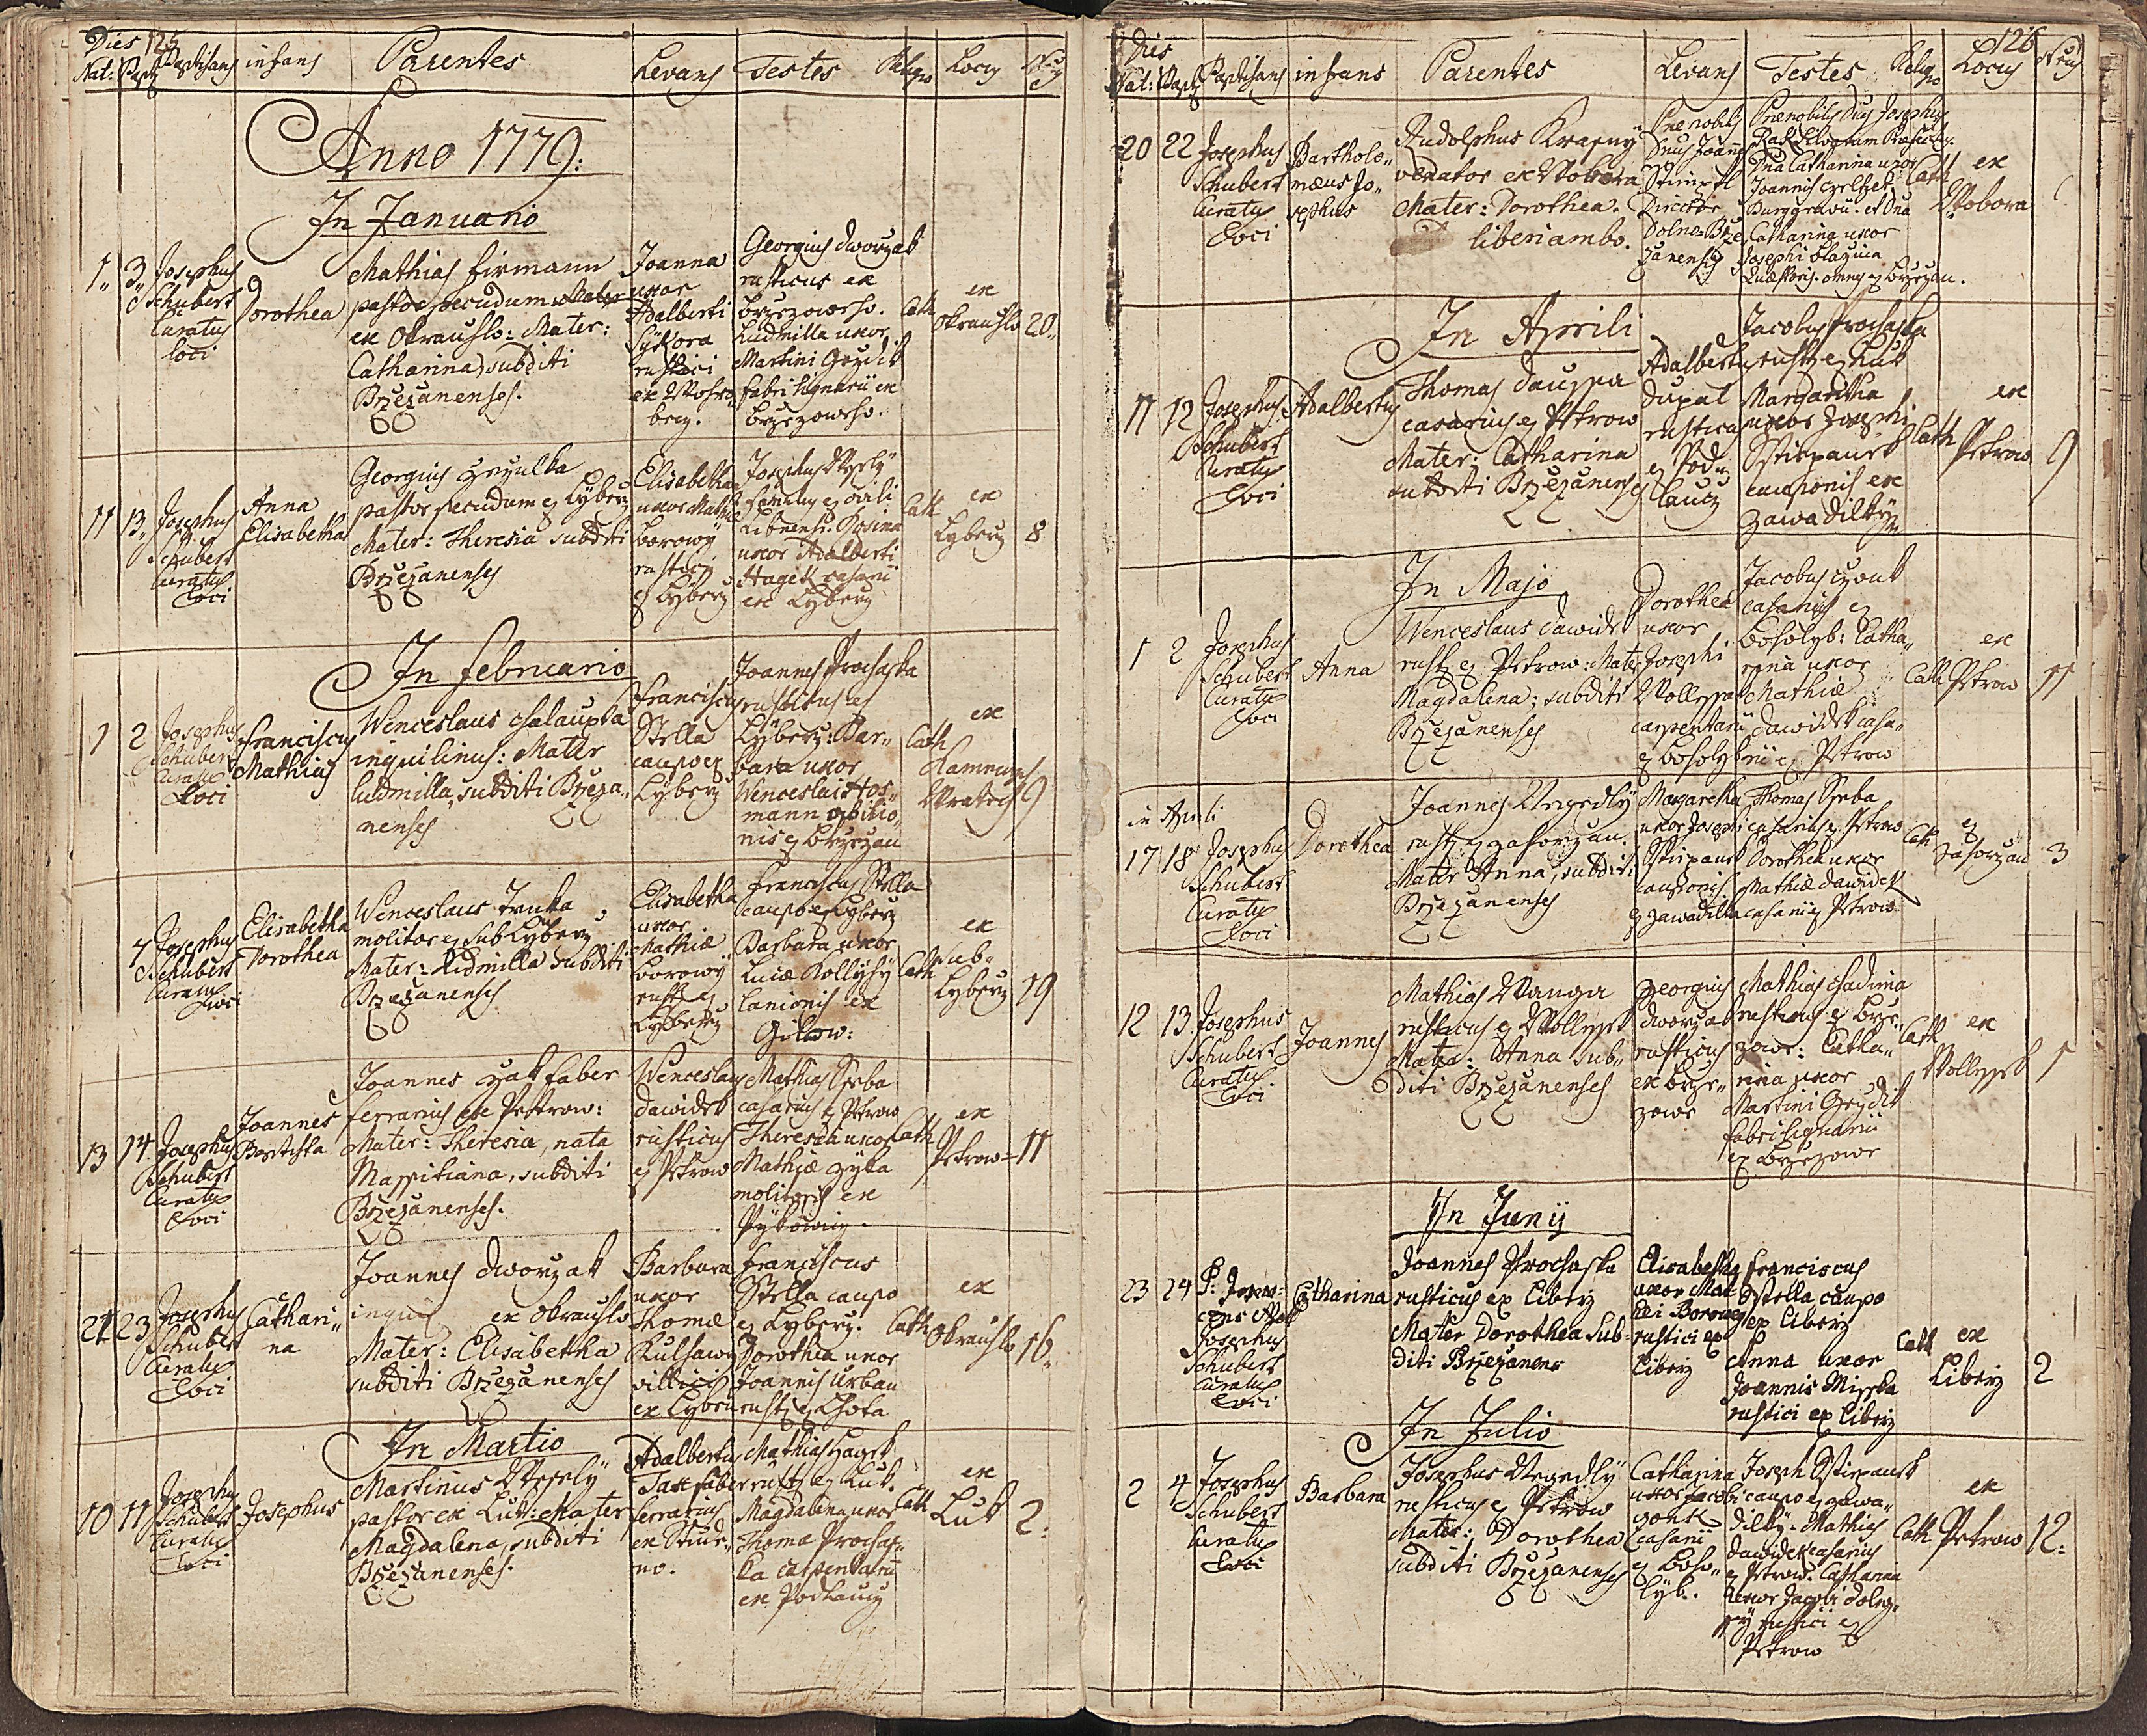 Dies 125
Nat: Bapt Baptisans infans Parentes Levans Testes Religio Locus Nrus
Anno 1779:
In Januario
1,, 3,, Josephus
Schubert
Curatus
loci
Dorothea
Mathias firmann
pastor pecudum
ex Okrauhlo: Mater:
Catharina, subditi
Brzezanenses.
Joanna
uxor
Adalberti
Sykora
rustici
Georgius dworzak
rusticus ex
brzezowsko.
Ludmilla uxor
Martini Greydik
fabri lignarii ex
brzezowsko.
Cath
ex
Okrauhlo
20,,
11 13,, Josephus
Schubert
Curatus
Loci
Anna
Elisabetha
Georgius
pastor pecudum ex Lyberz
Mater: Theresia subditi
Brzezanenses
Elisabetha
uxor Mathiæ
borowy
rustici
ex Lyberz
Josephus Wesely
famulus ex ovili
Rosina
uxor Adalberti
Hagek casarii
ex Lyberz
Cath
ex
Lyberz
8
In februario
1 2 Josephus
Schubert
Curatus
Loci
Franciscus
Mathias
Wenceslaus chalaupka
inquilinus: Mater
ludmilla, subditi Brzeza,,
nenses
Franciscus
Stella
caupo ex
Lyberz
Joannes Prochaska
rusticus ex
Lyberz: Bar,,
bara uxor
Wenceslai Hos,,
mann opilio,,
nis ex brzezan
Cath
ex
Kamenny
Wratech
9
4 Josephus
Schubert
Curatus
Loci
Elisabetha
Dorothea
Wenceslaus Trnka
molitor ex sub Lyberz
Mater: Ludmilla subditi
Brzezanenses
Elisabetha
uxor
Mathiæ
borowy
rust: ex
Lyberz
Franciscus Stella
caupo ex Lyberz
Barbara uxor
Lucæ Kollyhy
lanionis ex
Gilow:
Cath
ex
sub=
Lyberz
19
13 14 Josephus
Schubert
Curatus
Loci
Joannes
Baptista
Joannes zak faber
ferrarius ex Petrow:
Mater: Theresia, nata
subditi
Brzezanenses.
Wenceslaus
dawidek
rusticus
ex Petrow
Mathias Sseba
casarius ex Petrow
Theresia uxor
Mathiæ zyka
molitoris ex
Cath
ex
Petrow=
11
21 23 Josephus
Schubert
Curatus
Loci
Cathari=
na
Joannes dworzak
inqui ex Okrauhlo
Mater: Elisabetha
subditi Brzezanenses
Barbara
uxor
Thomæ
Kulhawy
villici
ex Lyberz
Franciscus
Stella caupo
ex Lyberz.
Dorothea uxor
Joannis Urban
rust: ex Lhota
Cath
ex
Okrauhlo
16,,
In Martio
10 11 Josephus
Schubert
Curatus
Loci
Josephus
Martinus Wesely
pastor ex Luk: Mater
Magdalena, subditi
Brzezanenses.
Adalbertus
faber
ferrarius
ex Stude,,
no.
Mathias Hagek
rust: ex Luk.
Magdalena uxor
Thomæ Prochas,,
ka carpentarii
ex Podlaucz
Cath
ex
Luk
2:
126
Dies
Nat: Bapt Baptisans infans Parentes Levans Testes Relig Locus Nrus
20 22 Josephus
Schubert
Curatus
Loci
Bartholo,,
mæus Jo,,
sephus
Rudolphus Krapny
venator ex Wobora
Mater: Dorothea.
liberi ambo.
Prænobilis
Dnus Joannes
Stimpfl
Director
Dolno=Brze
zanensis
Prænobilis Dnus Josephus
Dna Catharina uxor
Joannis
Burggravii. et Dna
Catharina uxor
Josephi
Quæstoris. omnes ex brzezan.
Cath
ex
Wobora
In Aprili
11 12 Josephus
Schubert
Curatus
Loci
Adalbertus
Thomas
casarius ex Petrow
Mater: Catharina
subditi Brzezanenses
Adalbertus
dupal
rusticus
ex Pod=
laucz
Jacobus Prochaska
rust: ex Luk
Margaretha
uxor Josephi
Sstiepanek
cauponis ex
zawadilky
Cath
ex
Petrow
9
In Majo
1 2 Josephus
Schubert
Curatus
Loci
Anna
Wenceslaus dawidek
rust: ex Petrow: Mater
Magdalena; subditi
Brzezanenses
Dorothea
uxor
Josephi
carpentarii
ex boholyb
Jacobus zont
casarius ex
boholyb: Catha,,
rina uxor
Mathiæ
dawidek casa=
rii ex Petrow
Cath
ex
Petrow
11
in Aprili
17 18 Josephus
Schubert
Curatus
Loci
Dorothea
Joannes Negedly
rust: ex zahorzan.
Mater Anna, subditi
Brzezanenses
Margaretha
uxor Josephi
Sstiepanek
cauponis
ex zawadilka
Thomas Sseba
casarius ex Petrow
Dorothea uxor
Mathiæ dawidek
casarii ex Petrow
Cath
ex
zahorzan
3
12 13 Josephus
Schubert
Curatus
Loci
Joannes
Mathias
rusticus ex
Mater: Anna sub,,
diti Brzezanenses
Georgius
dworzak
rusticus
ex brze=
zowe
Mathias chadima
rusticus ex brze,,
zowe: Catha,,
rina uxor
Martini Greydik
fabri lignarii
ex brzezowe
Cath
ex
1
In Junij
23 24 P:
Josephus
Schubert
Curatus
Loci
Catharina
Joannes Prochaska
rusticus ex Liberz
Mater Dorothea sub=
diti Brzezanens
Elisabetha
uxor Mat=
hei Borowy
rustici ex
Liberz
Franciscus
Stella caupo
ex Liberz
Anna uxor
Joannis Misska
rustici ex Liberz
Cath
ex
Liberz
2
In Julio
2 4 Josephus
Schubert
Curatus
Loci
Barbara
Josephus Negedly
rusticus ex Petrow
Mater: Dorothea
subditi Brzezanenses
Catharina
uxor Jacobi
zont
casarii
ex boho,,
lyb.
Joseph Sstiepanek
caupo ex zawa,,
dilky. Mathias
dawidek casarius
ex Petrow. Catharina
uxor Jacobi
rustici ex
Petrow
Cath
ex
Petrow
12: